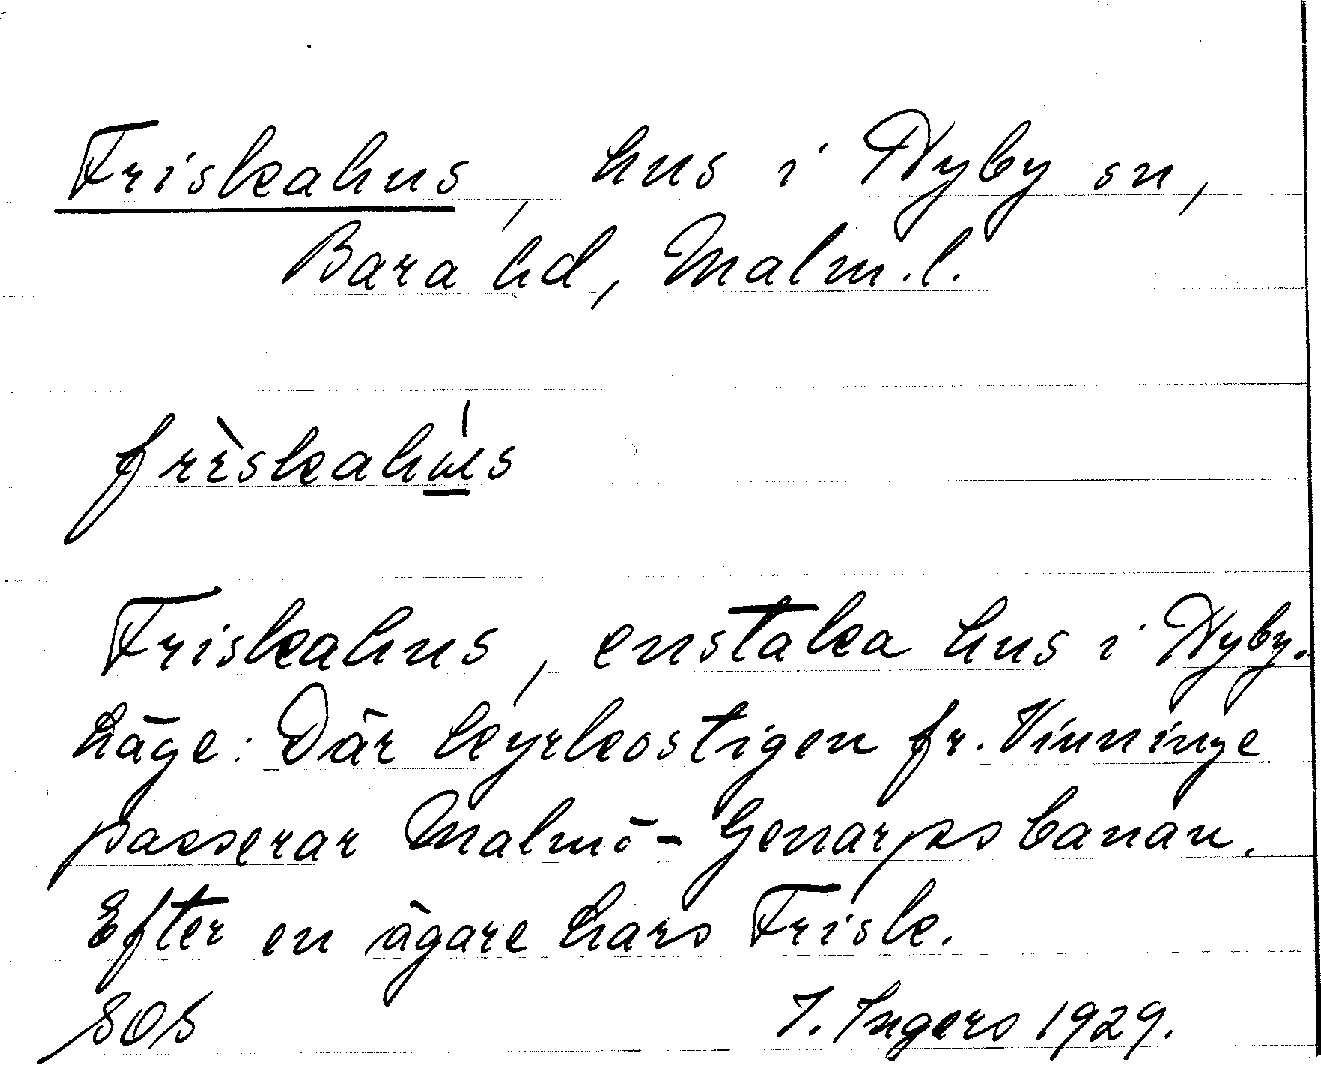 Friskahus, hus i Hyby sn,
Bara hd, Malm.l.
frìskahú̲s
Friskahus, enstaka hus i Hyby.
Läge: Där kyrkostigen fr. Vinninge
passerar Malmö-Genarpsbanan.
Efter en ägare Lars Frisk.
SOS I. Ingers 1929.